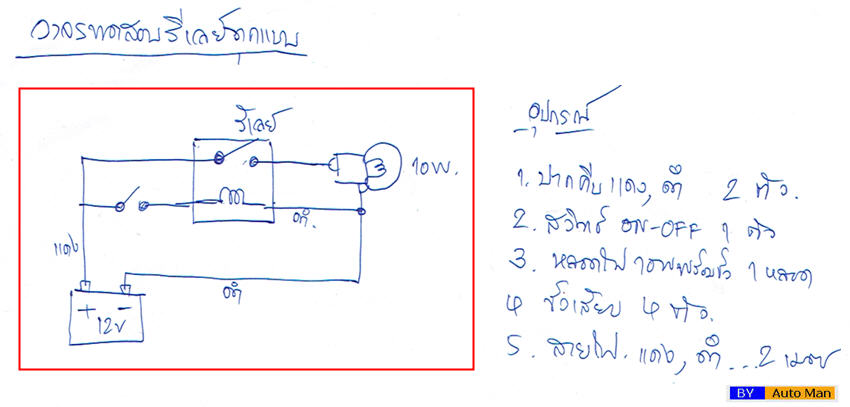 วงจรทดสอบรีเลย์ทุกแบบ
รีเลย์
10W.
ดำ.
แดง
ดำ
+ -
12V
อุปกรณ์
1. ปากคีบ แดง, ดำ 2 ตัว.
2. สวิทซ์ ON-OFF 1 ตัว
3. หลอดไฟ 10W พร้อมขั้ว 1 หลอด
4 ขั้วเสียบ 4 ตัว.
5. สายไฟ. แดง, ดำ...2 เมตร
BY Auto Man